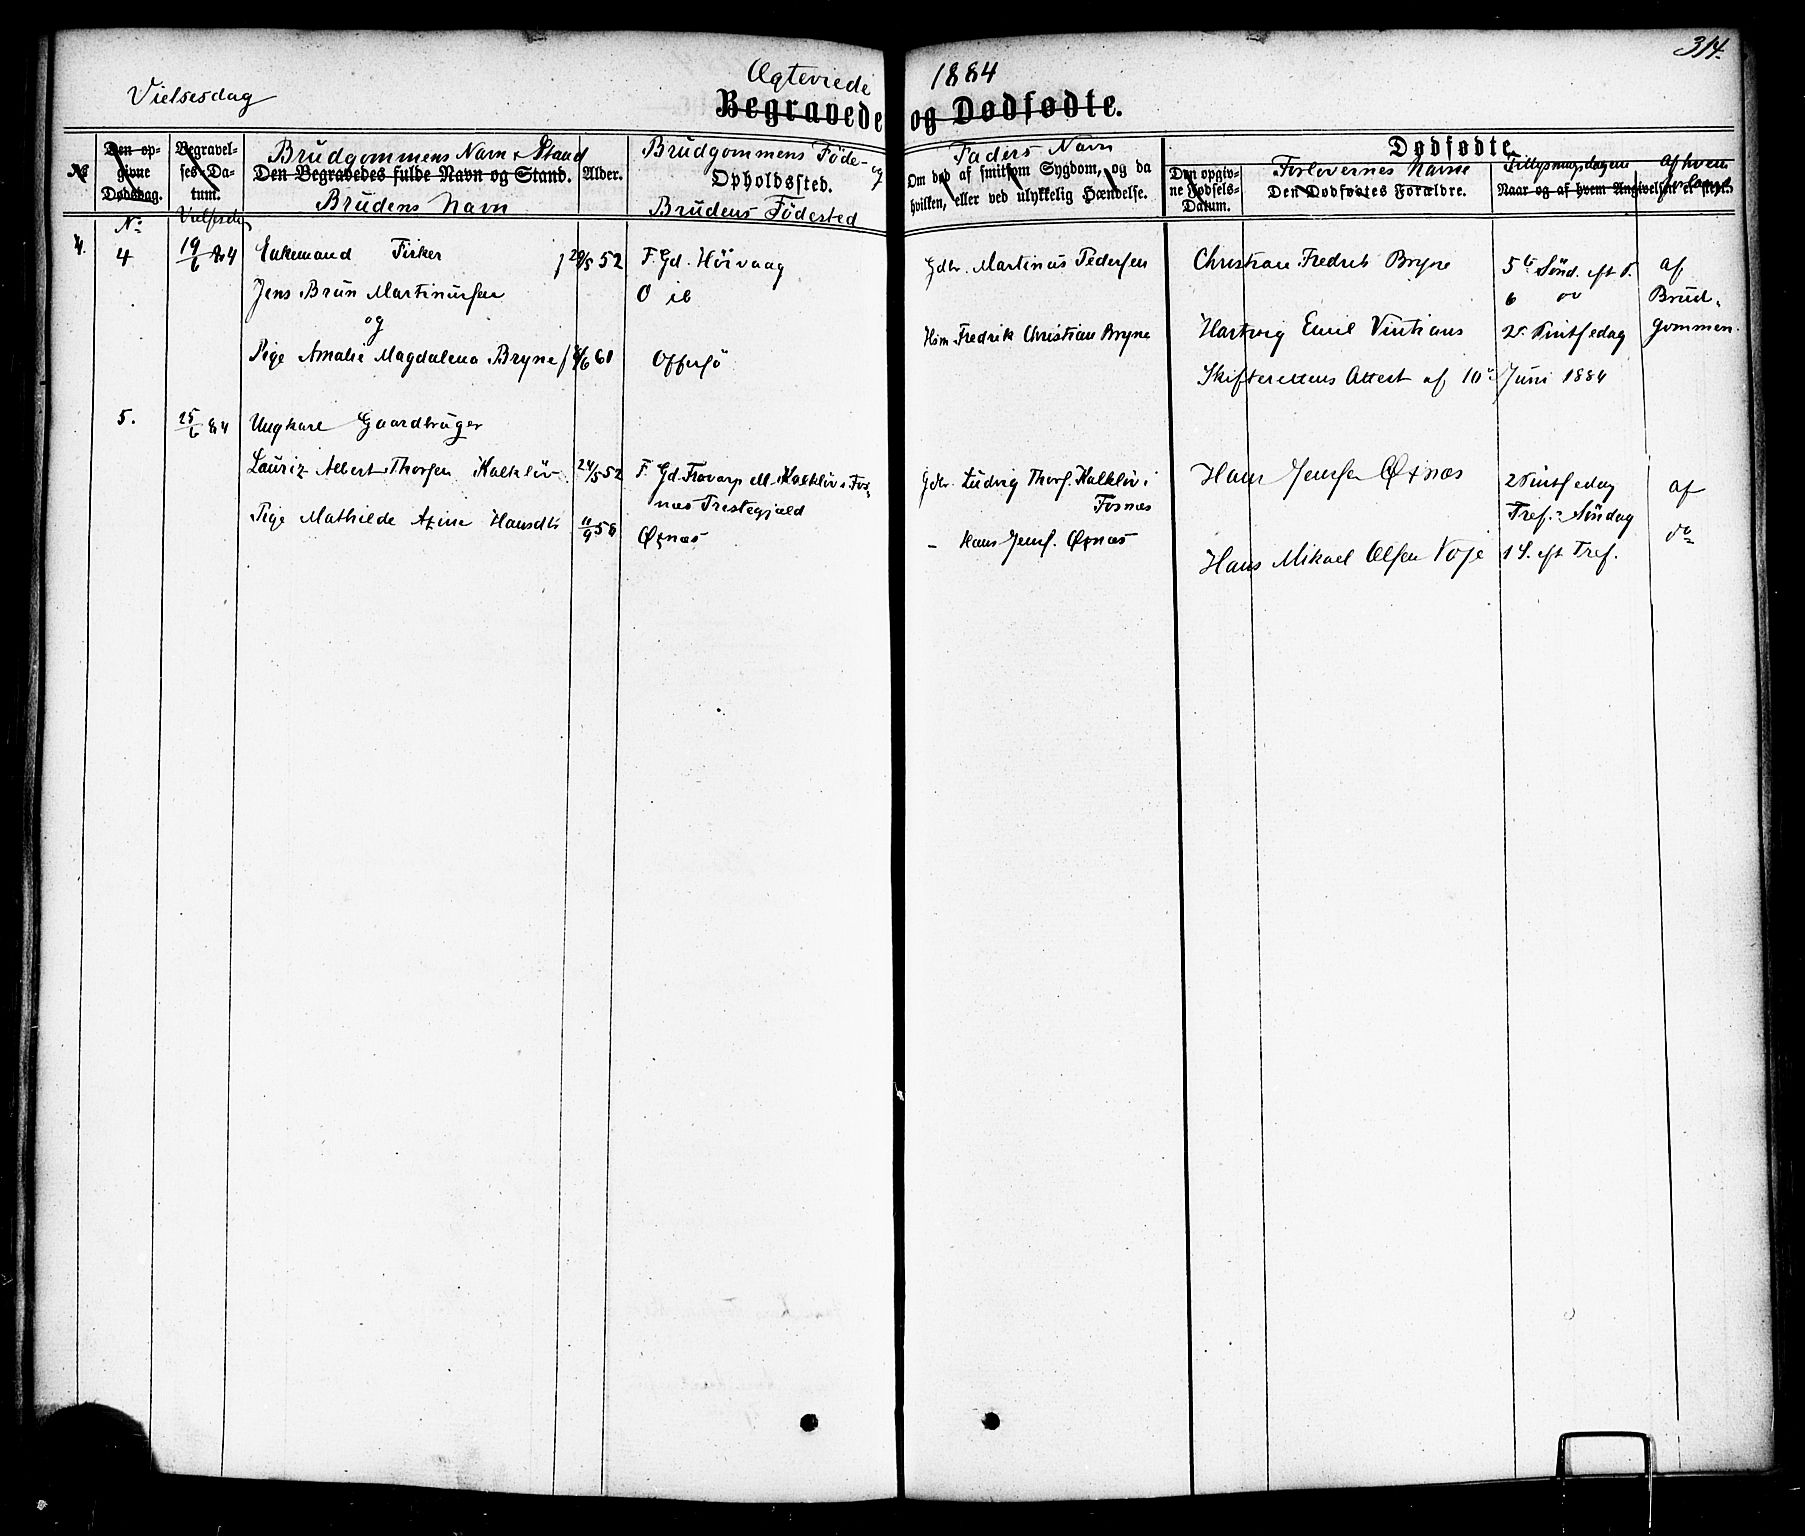 314.
Vielsesdag
Ægteviede 1884
Begravede og Dødfødte.
No
Den opgivne Dødsdag.
No
Begravelses-Datum.
Brudgommens Navn & Stand
Den Begravedes fulde Navn og Stand.
Brudens Navn
Alder.
Brudgommens Føde- og
Opholdssted.
Brudens Fødested
Faders Navn
Om død af smitsom Sygdom, og da
hvilken, eller ved ulykkelig Hændelse.
Dødfødte.
Den opgivne Fødsels-Datum.
Forlovernes Navne
Den Dødfødtes Forældre.
Tillysningsdagene
af hvem
Naar og af hvem Angivelsen er skeet.
4.
4 19/6 84 Enkemand Fisker 29/5 52 F. Gd. Höivaag Gdbr. Martinus Pedersen Christian Fredrik Bryne 5te Sönd. eft P. af
Jens Brun Martinussen O ib 6 Brud-
og
Hsm Fredrik Christian Bryne Hartvig Emil 2. Pintsedag gommen.
Pige Amalie Magdalena Bryne /6 61 Offersö Skifterettens Attest af 10de Juni 1884
5. 25/6 84 Ungkarl Gaardbruger
Lauriz Albert Thorsen Kalklöv 24/5 52 F. Gd. O Kalklöv i Fos-
næs Prestegjæld
Gdbr. Ludvig Thors. Kalklöv i
Fosnæs
Hans Jensen Öxnæs 2 Pintsedag af
Tref. Söndag do
Pige Mathilde Hansdtr 11/9 58 Öxnæs - Hans Jens. Öxnæs
Hans Mikael Olsen Voje 1 S. eft Tref.